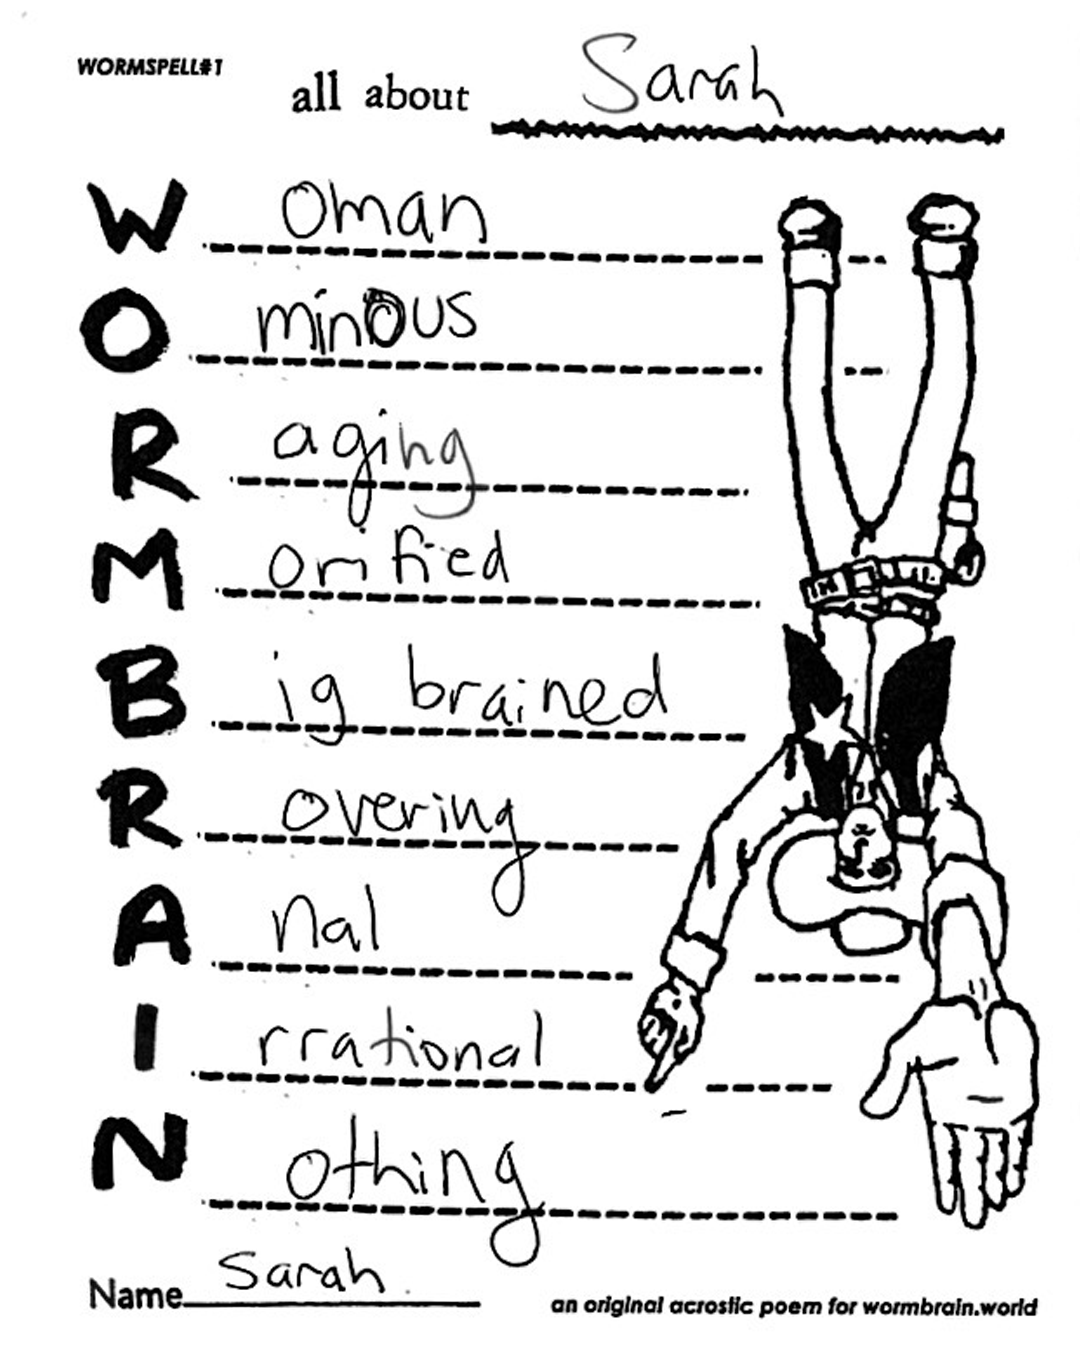 WORMSPELL#1
all about Sarah
W oman
O minous
R aging
M orified
B ig brained
R overing
A nal
I rrational
N othing
Name Sarah
an original acrostic poem for wormbrain.world